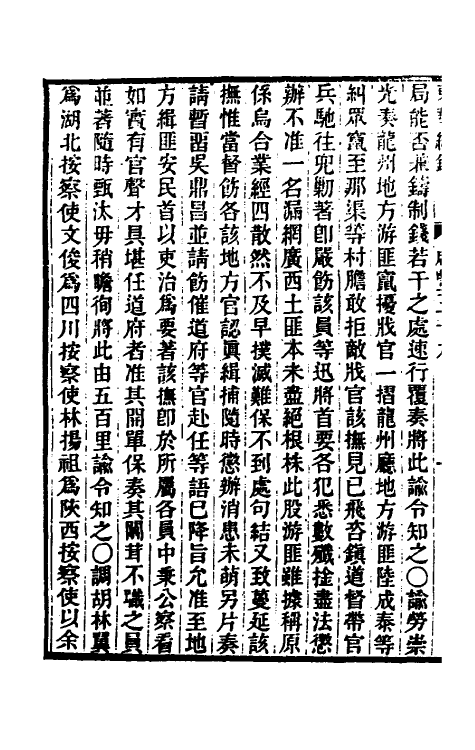 局能否兼鑄制錢若干之處速行覆奏將此諭令知之〇諭勞崇
光奏龍州地方游匪竄擾戕官一摺龍州廳地方游匪陸成泰等
糾眾竄至那渠等村膽敢拒敵戕官該撫見已飛咨鎮道督帶官
兵馳往兜勦著卽嚴飭該員等迅將首要各犯悉數殲捦盡法懲
辦不准一名漏網廣西土匪本未盡絕根株此股游匪雖據稱原
係烏合業經四散然不及早撲滅難保不到處句結又致蔓延該
撫惟當督飭各該地方官認眞緝捕隨時懲辦消患未萌另片奏
請暫畱吳鼎昌並請飭催道府等官赴任等語已降旨允准至地
方緝匪安民首以吏治爲要著該撫卽於所屬各員中秉公察看
如實有官聲才具堪任道府者准其開單保奏其闒茸不職之員
並著隨時甄汰毋稍瞻徇將此由五百里諭令知之〇調胡林翼
爲湖北按察使文俊爲四川按察使林揚祖爲陝西按察使以余